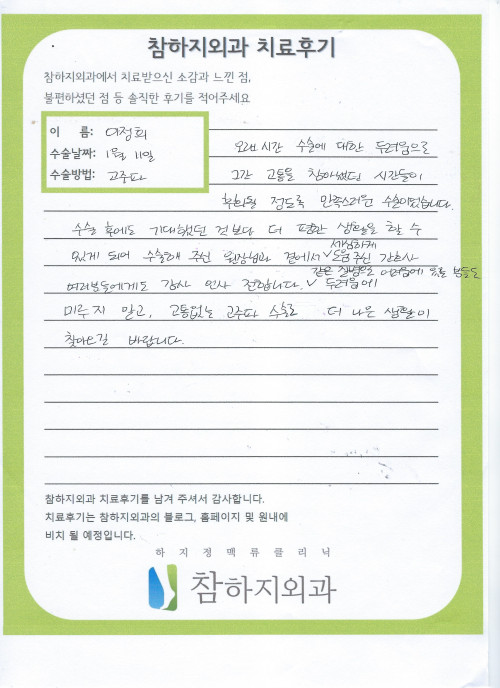 참하지외과 치료후기
참하지외과에서 치료받으신 소감과 느낀 점,
불편하셨던 점 등 솔직한 후기를 적어주세요
이 름: 이정희
수술날짜: 1월 11일
수술방법: 고주파
오랜 시간 수술에 대한 두려움으로
그간 고통을 참아왔던 시간들이
후회될 정도로 만족스러운 수술이었습니다.
수술 후에도 기대했던 것보다 더 편한 생활을 할 수
세심하게
있게 되어 수술해 주신 원장님과 곁에서 도움 주신 간호사
같은 질병으로 어려움에 분들도
여러분들에게도 감사 인사 전합니다. 두려움에
미루지 말고, 고통없는 고주파 수술로 더 나은 생활이
찾아오길 바랍니다.
참하지외과 치료후기를 남겨 주셔서 감사합니다.
치료후기는 참하지외과의 블로그, 홈페이지 및 원내에
비치 될 예정입니다.
하지정맥류클리닉
참하지외과